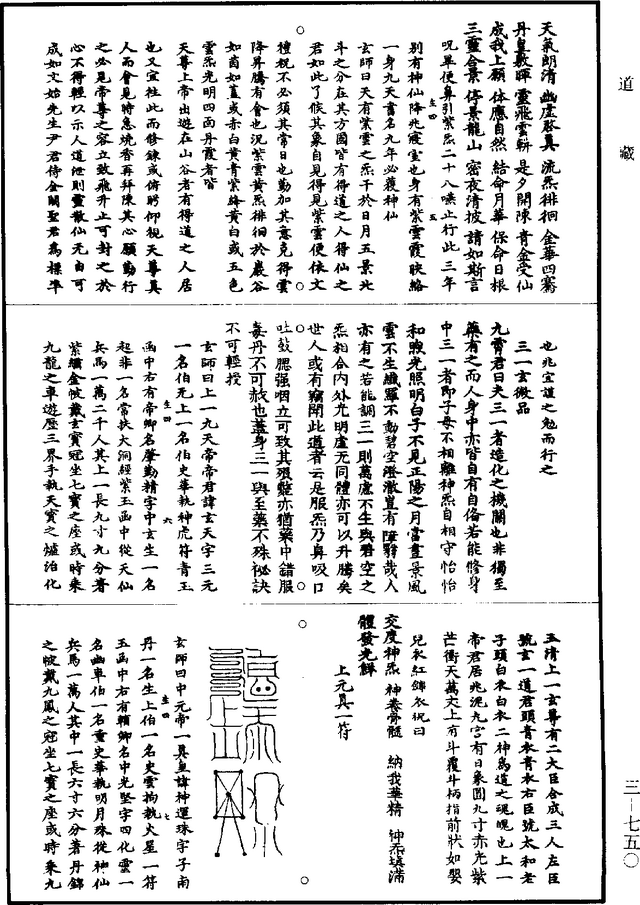 道藏
天氣朗清 幽虛啟真 流炁徘徊 金華四騫
丹皇敷暉 靈飛雲軿 是夕開陳 青金受仙
成我上願 体應自然 結命月華 保命日根
三靈合景 停景龍山 密夜清披 請如斯言
呪畢便鼻引紫炁二十八嚥止行此三年
別有神仙降兆寢室也身有紫雲霞映絡
一身九天書名九年必獲神仙
玄師曰天有紫雲之炁千於日月五景北
斗之分在其方國皆有得道之人得仙之
君如此了候其象自見得見紫雲便依文
禮祝不必須其常日也勤加其意克得雲
降昇騰有會也況紫雲黃炁徘徊於巖谷
如茵如蓋或赤白黃青紫絳黃白或五色
雲炁光明四面丹霞者皆
天尊上帝出遊在山谷者有得道之人居
也又宜往此而修鍊或俯眄仰視天尊真
人而會見時急燒香再拜陳其心願勤行
之必見帝尊之容立致飛升止可封之於
心不得輕以示人道泄則靈散仙无由可
成如文始先生尹君侍金闕聖君爲標準
也兆宜謹之勉而行之
三一玄微品
九霄君曰夫三一者造化之機關也非獨至
藥有之而人身中亦皆自有自俻若能脩身
中三一者即子母不相離神炁自相守怡怡
和煦光照明白子不見正陽之月當晝景風
雲不生纖羅不動碧空澄澈豈有障翳哉人
亦有之若能調三一則萬慮不生與碧空之
炁相合內外光明虛无同體亦可以升騰矣
世人或有竊聞此道者云是服炁乃鼻吸口
吐鼓腮强咽立可致其殞斃亦猶藥中錯服
毒丹不可救也蓋身三一與至藥不殊祕訣
不可輕授
玄師曰上一九天帝帝君諱玄天字三元
一名伯无上一名伯史華執神虎符青玉
函中右有帝卿名肇勤精字中玄生一名
起非一名常扶大洞經紫玉函中從天仙
兵馬一萬二千人其上一長九寸九分著
紫繡金帔戴玄寶冠坐七寶之座或時乘
九龍之車遊歷三界手執天寶之爐治化
玉清上一玄尊有二大臣合成三人左臣
號玄一道君頭青衣青衣右臣號太和老
子頭白衣白衣二神為道之魂魄也上一
帝君居兆泥丸宮有日象圓九寸赤光紫
芒衝天萬丈上有斗覆斗柄指前狀如嬰
兒衣紅錦衣祝曰
交度神炁 神養骨髓 納我華精 钟炁填滿
體發光鮮
上元真一符
玄師曰中元帝一真皇諱神運珠字子南
丹一名生上伯一名史雲拘執火星一符
玉函中右有輔卿名中光堅字四化雲一
名幽車伯一名董史華執明月珠從神仙
兵馬一萬人其中一長六寸六分著丹錦
之帔戴九鳳之冠坐七寶之座或時乘九
三一七五〇